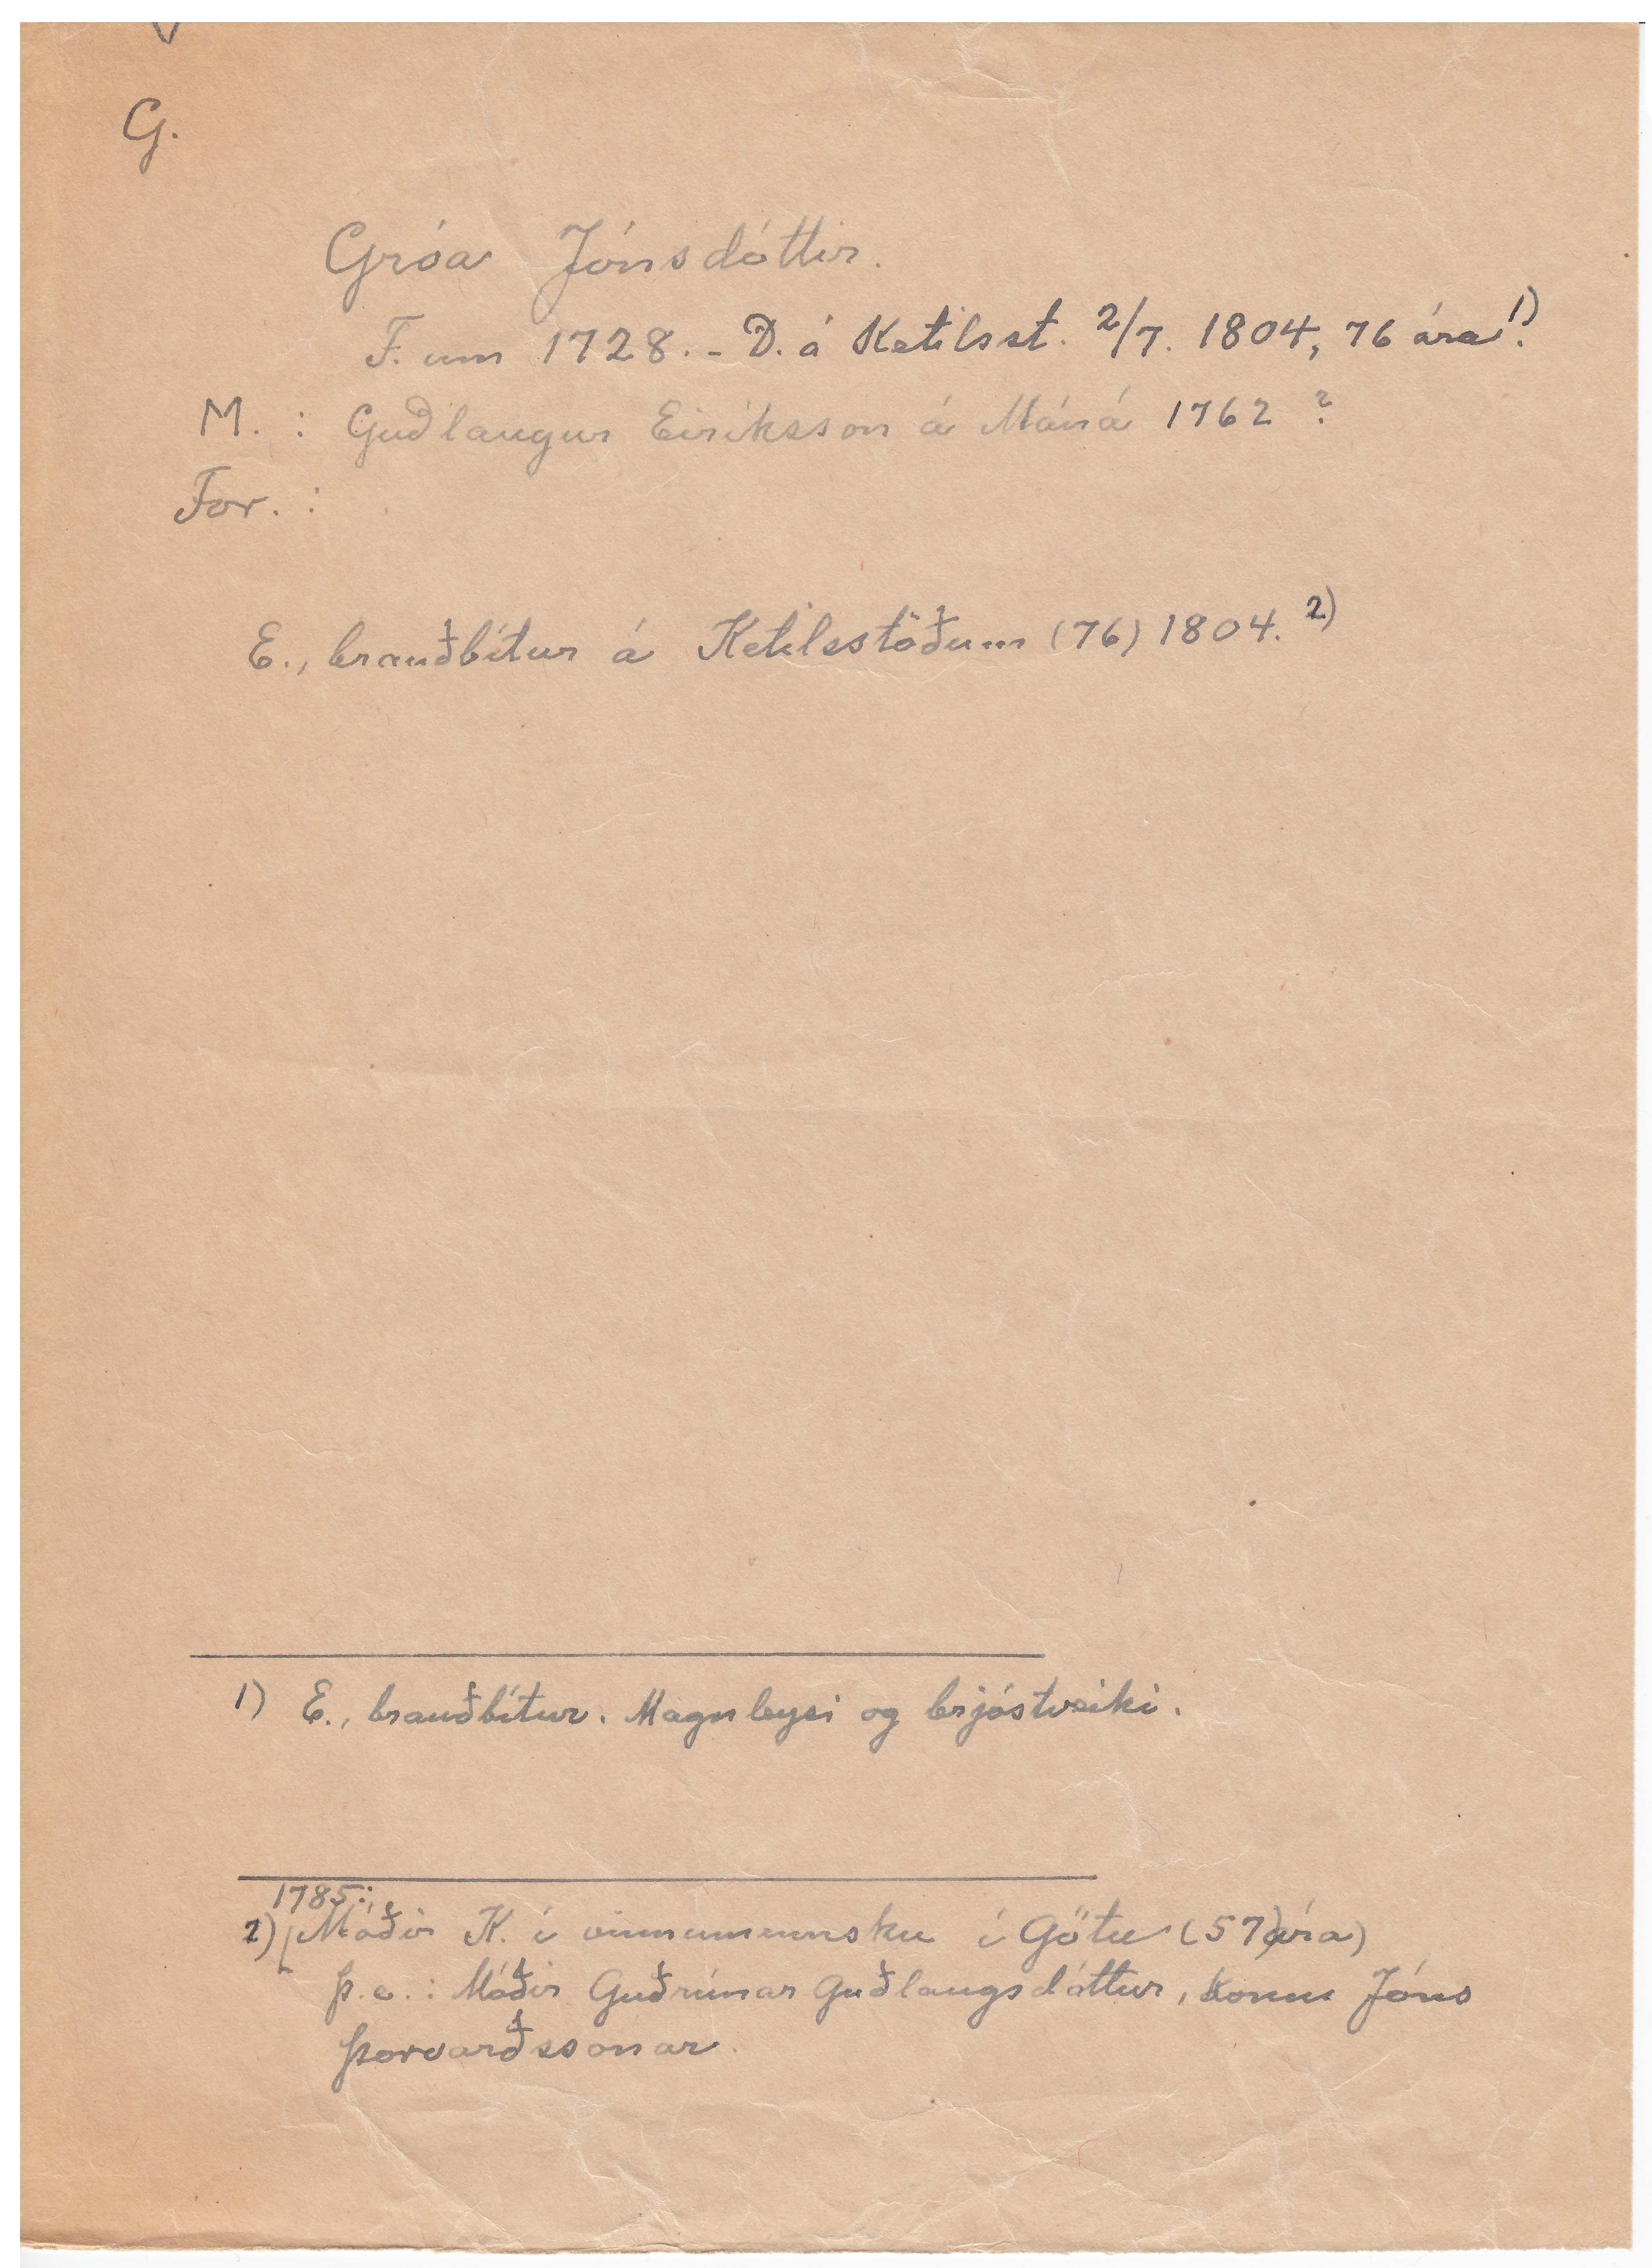 G.
Gróa Jónsdóttir.
F. um 1728. - D. á Ketilsst. 2/7. 1804, 76 ára. 1)
M. : Guðlaugur Eiríksson á Máná 1762 ?
For. :
E., brauðbítur á Ketilsstöðum (76) 1804. 2)
1) E., brauðbítur. Magnleysi og brjóstveiki.
1785:
2) Móðir K. í vinnumennsku í Götu (57 ára)
Þ.e.: Móðir Guðrúnar Guðlaugsdóttur, konu Jóns
Þorvarðssonar.